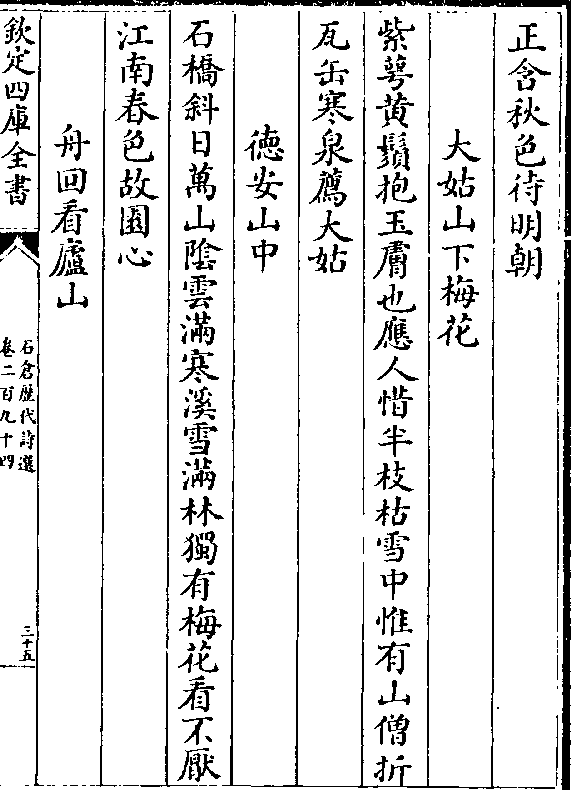 正含秋色待明朝
大姑山下梅花
紫萼黄鬚抱玉膚也應人惜半枝枯雪中惟有山僧折
瓦缶寒泉薦大姑
德安山中
石橋斜日萬山陰雲滿寒溪雪滿林獨有梅花看不厭
江南春色故園心
舟回看廬山
欽定四庫全書
石倉歷代詩選
卷二百九十四
三十五